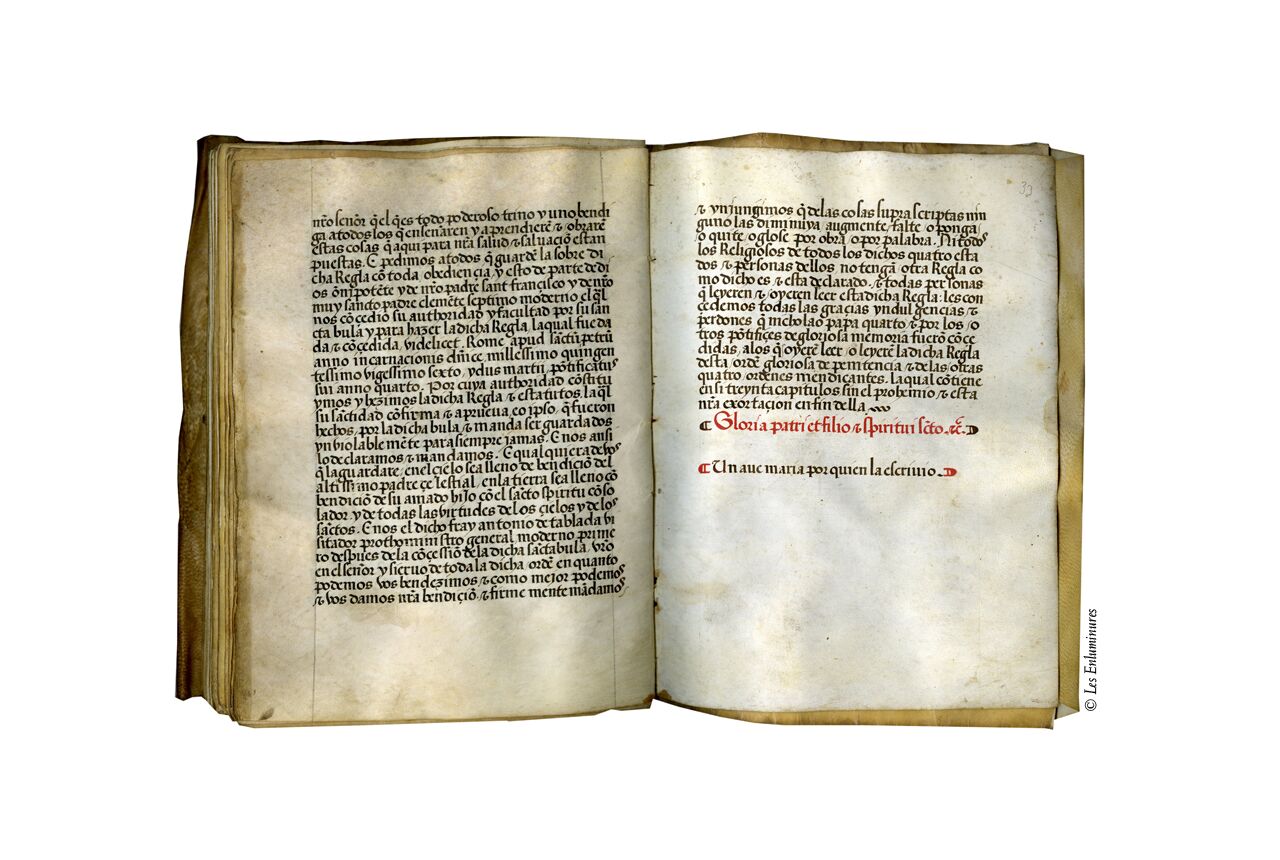 nr̃o señor q̃ el q̃es todo poderoso trino y uno bendi
ga atodos los q̃ enseñarẽ y aprendierẽ ⁊ obrarẽ
estas cosas q̃ aqui para nr̃a salud ⁊ saluaciõ estan
puestas. E pedimos atodos q̃ guardẽ la sobre di
cha Regla cõ toda obediencia, y esto de parte de di
os om̃ipotẽte y de nr̃o padre sant francisco y de nr̃o
muy sancto padre clemẽte septimo moderno el q̃l
nos cõcedio su authoridad y facultad por su san
cta bula y para hazer la dicha Regla, la qual fue da
da ⁊ cõcedida, videlicet, Rome, apud sanctũ petrũ
anno incarnacionis dñice, millessimo quingen
tessimo vigessimo sexto, ydus martii, põtificatus
sui anno quarto. Por cuya authoridad cõstitu
ymos y hezimos la dicha Regla ⁊ estatutos, la q̃l
su sãctidad cõfirma ⁊ aprueua, eo ipso, q̃ fueron
hechos, por la dicha bula ⁊ manda ser guardados
ynbiolable mẽte para siempre jamas. E nos ansi
lo declaramos ⁊ mandamos. E qual quiera de vos
q̃ la guardare, en el cielo sea lleno de bendiciõ del
altissimo padre çelestial, en la tierra sea lleno cõ
bendiciõ de su amado hijo cõ el sãcto spiritu cõso
lador y de todas las virtudes de los çielos y de los
sãctos. E nos el dicho fray antonio de tablada vi
sitador prothoministro general, moderno prime
ro despues de la cõçessiõ de la dicha sãcta bula, vr̃o
en el señor y sieruo de toda la dicha ordẽ en quanto
podemos vos bendezimos ⁊ como mejor podemos
⁊ vos damos nr̃a bendiçiõ. ⁊ firme mente mãdamos
33
⁊ ynjungimos q̃ de las cosas supra scriptas nin
guno las diminuya, augmente, falte, o ponga
o quite, o glose por obra o por palabra. Ni todos
los Religiosos de todos los dichos quatro esta
dos ⁊ personas dellos, no tengã otra Regla co
mo dicho es ⁊ esta declarado. ⁊ todas personas
q̃ leyeren ⁊ oyeren leer esta dicha Regla: les con
cedemos todas las graçias yndulgencias ⁊
perdones q̃ nicholao papa quarto ⁊ por los o
tros põtifiçes de gloriosa memoria fuerõ cõce
didas, alos q̃ oyerẽ leer, o leyerẽ la dicha Regla
desta ordẽ gloriosa de penitencia ⁊ de las otras
quatro ordenes mendicantes. la qual cõtiene
en si treynta capitulos sin el prohemio ⁊ esta
nr̃a exortaçion en fin della
Gloria patri et filio ⁊ spiritui sc̃to. ⁊c̃.
Un aue maria por quien la escriuio.
© Les Enluminures